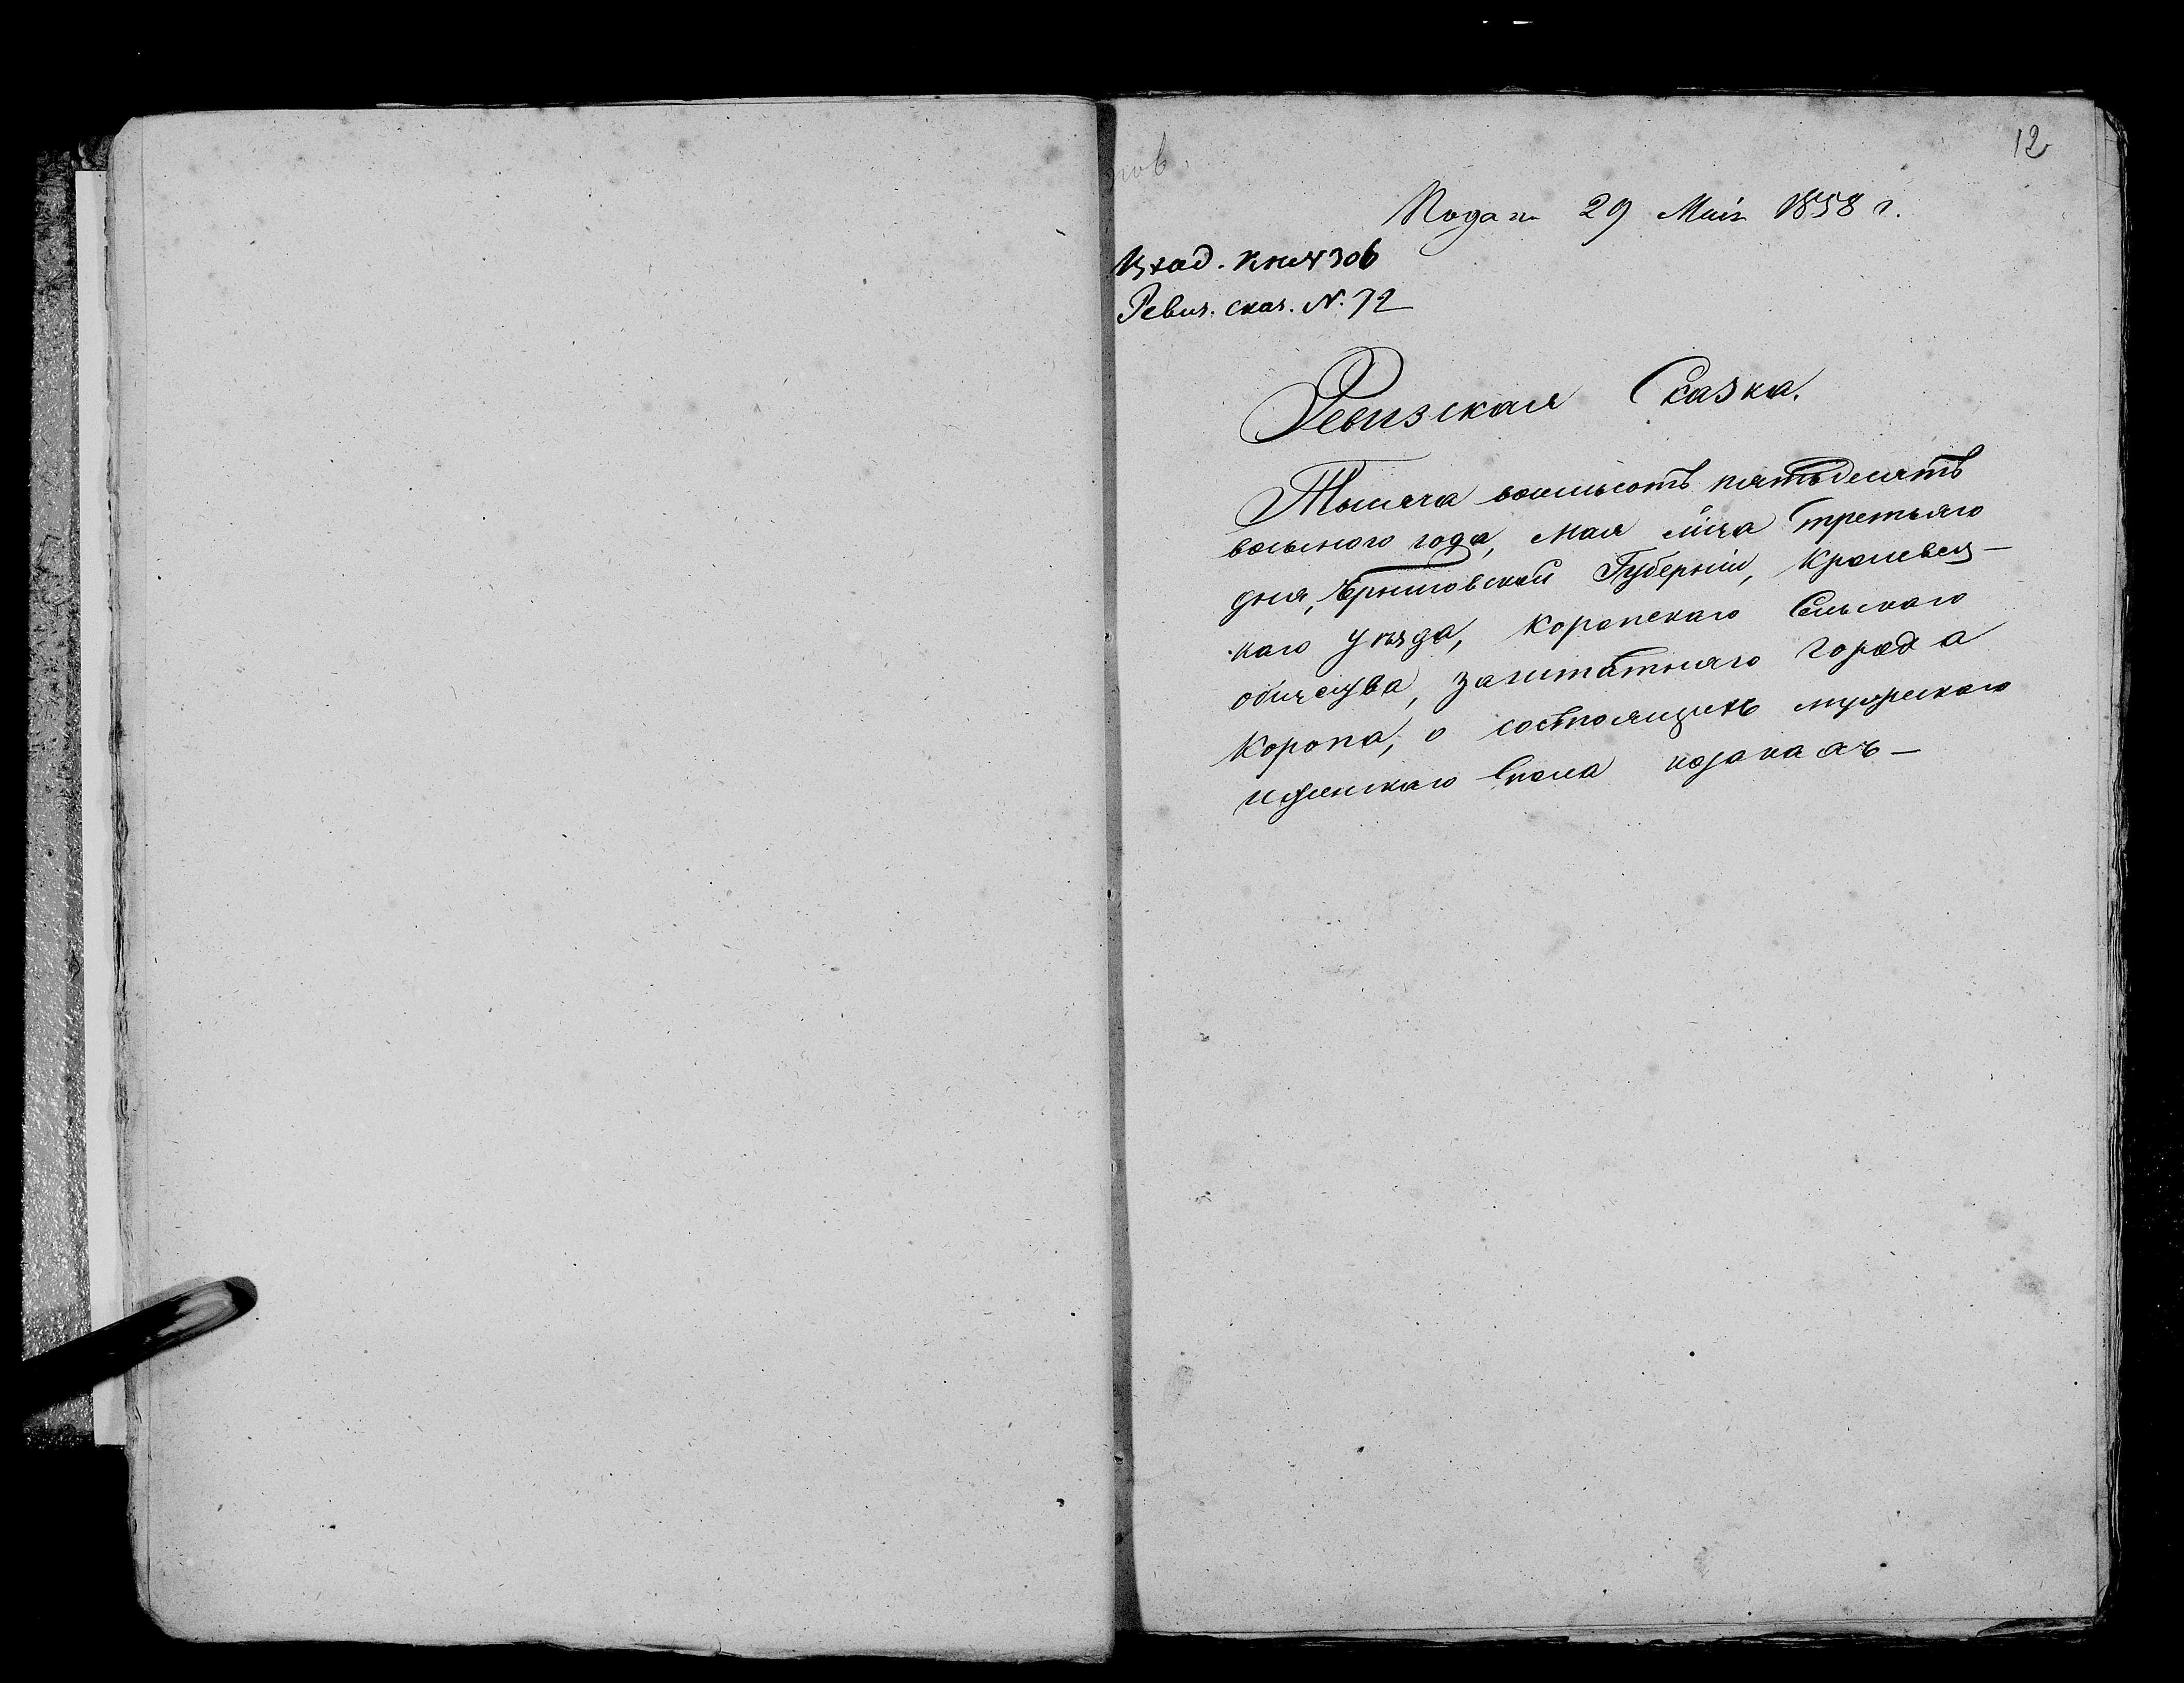 12
Подана 29 Маія 1858 г.
Вход. кни № 306
Ревиз. сказ. N. 72
Ревизская Сказка.
Тысяча восемьсотъ пятьдесятъ
восьмого года, мая м̃ца третьяго
дня, Черниговской Губерніи, Кролевец-
каго уезда, Коропскаго Сельскаго
общества, заштатнаго города
Коропа, о состоящихъ мужескаго
и женскаго пола козакахъ-